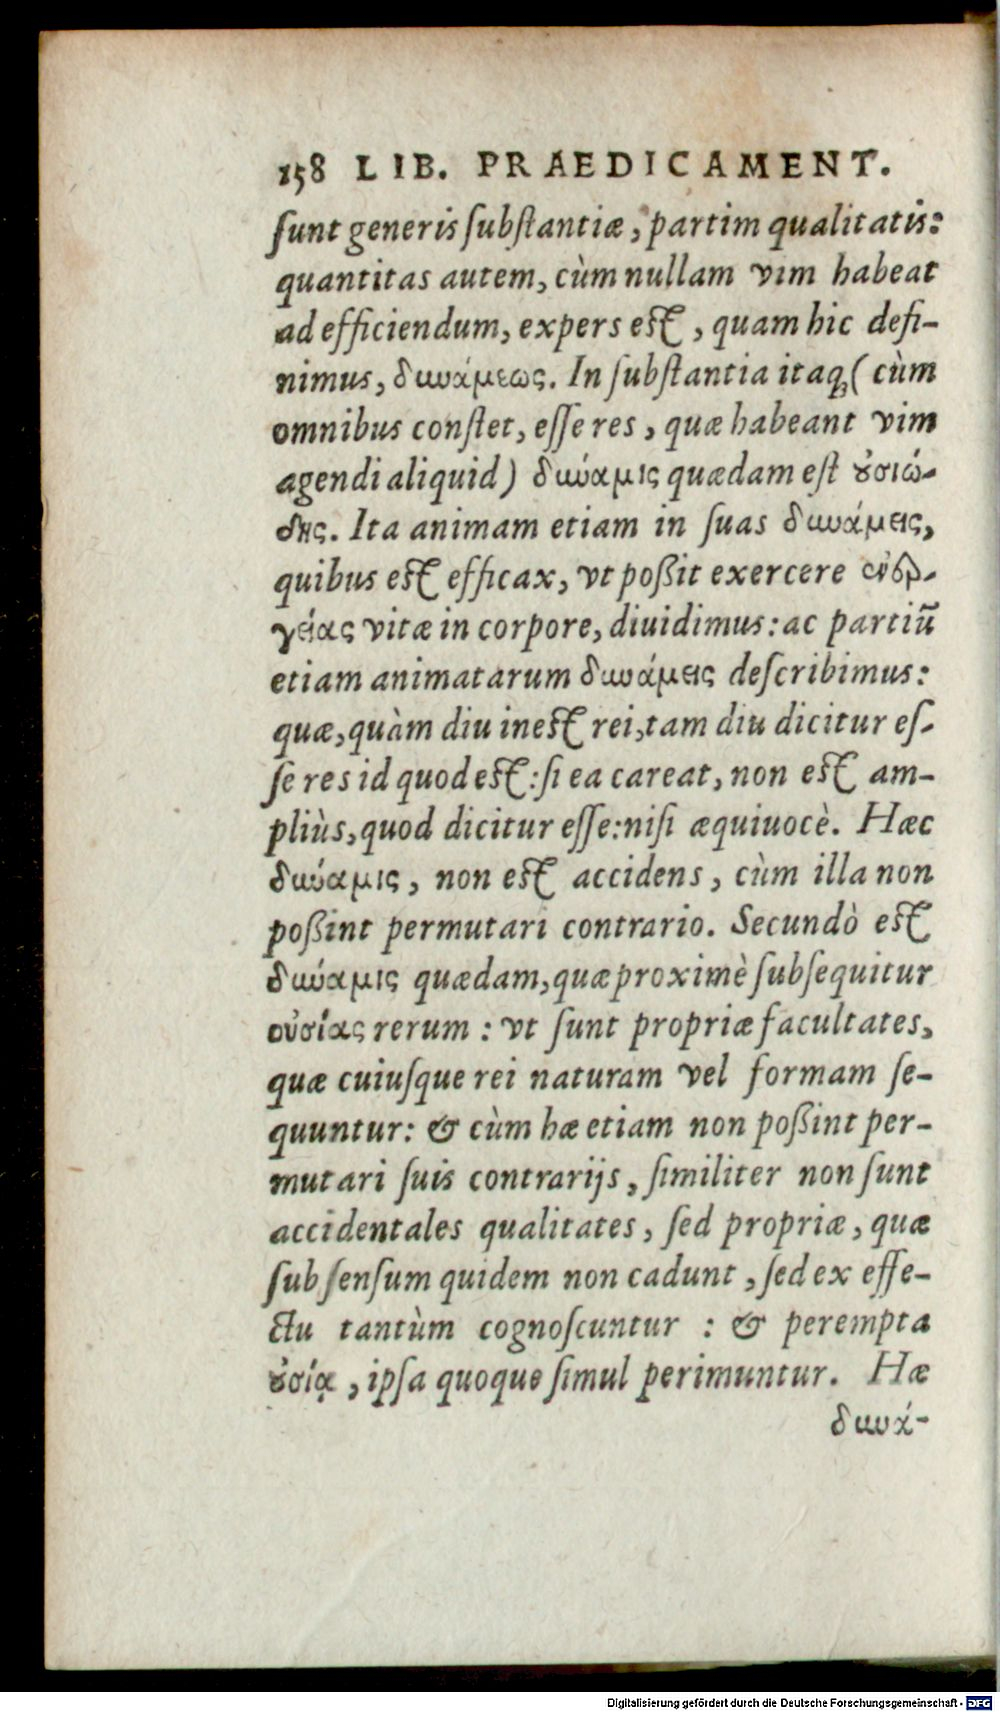 158 LIB. PRAEDICAMENT.
ſunt generis ſubſtantiæ, partim qualitatis:
quantitas autem, cùm nullam vim habeat
ad efficiendum, expers eſt, quam hic defi-
nimus, δυνάμεως. In ſubſtantia itaq; (cùm
omnibus conſtet, eſſe res, quæ habeant vim
agendi aliquid) δύναμις quædam eſt ȣ̓σιώ-
δης. Ita animam etiam in ſuas δυνάμεις,
quibus eſt efficax, vt poßit exercere ἐνερ-
γείας vitæ in corpore, diuidimus: ac partiū
etiam animatarum δυνάμεις deſcribimus:
quæ, quàm diu ineſt rei, tam diu dicitur eſ-
ſe res id quod eſt: ſi ea careat, non eſt am-
pliùs, quod dicitur eſſe: niſi æquiuocè. Hæc
δύναμις, non eſt accidens, cùm illa non
poßint permutari contrario. Secundò eſt
δύναμις quædam, quæ proximè ſubſequitur
οὐσίας rerum: vt ſunt propriæ facultates,
quæ cuiuſque rei naturam vel formam ſe-
quuntur: & cùm hæ etiam non poßint per-
mutari ſuis contrarijs, ſimiliter non ſunt
accidentales qualitates, ſed propriæ, quæ
ſub ſenſum quidem non cadunt, ſed ex effe-
ctu tantùm cognoſcuntur: & perempta
ȣ̓σίᾳ, ipſa quoque ſimul perimuntur. Hæ
δυνά-
Digitalisierung gefördert durch die Deutsche Forschungsgemeinschaft - DFG